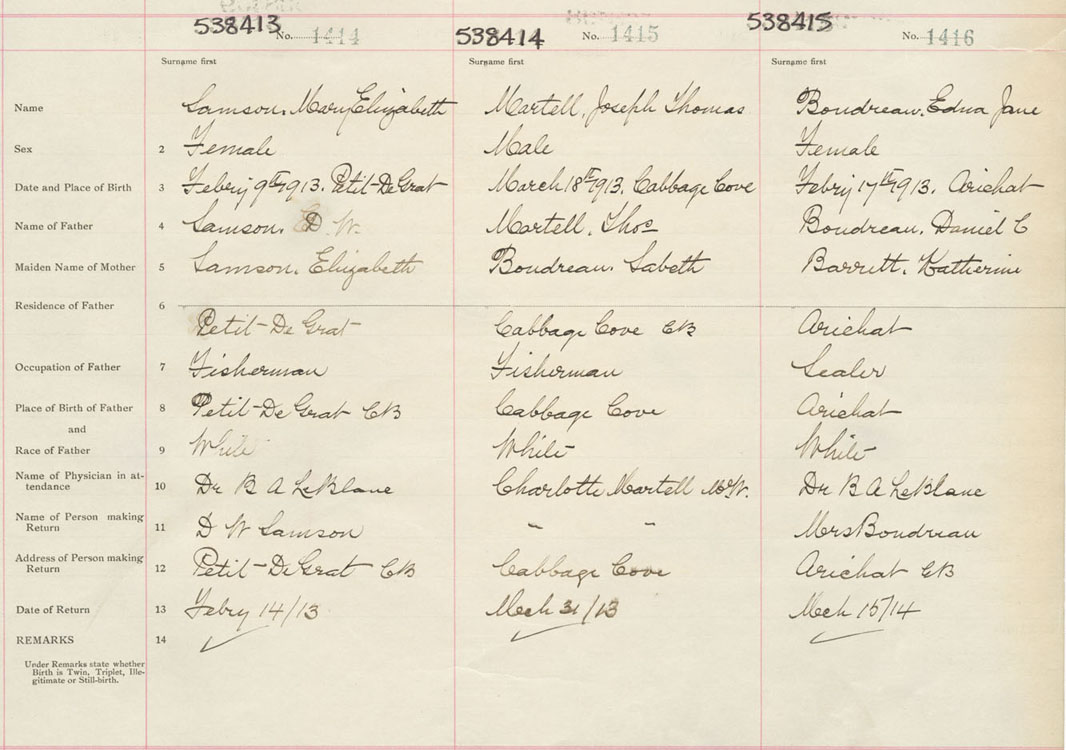 538413 No. 1414 538414 No. 1415 538415 No. 1416
Surname first Surname first Surname first
Name Samson, Mary Elizabeth Martell, Joseph Thomas Boudreau, Edna Jane
Sex 2 Female Male Female
Date and Place of Birth 3 Febry 9th 1913, Petit-De Grat March 18th 1913, Cabbage Cove Febry 17th 1913, Arichat
Name of Father 4 Samson, D. W. Martell, Thos Boudreau, Daniel C
Maiden Name of Mother 5 Samson, Elizabeth Boudreau, Sabeth Barrett, Katherine
Residence of Father 6 Petit-De Grat Cabbage Cove CB Arichat
Occupation of Father 7 Fisherman Fisherman Sealer
Place of Birth of Father 8 Petit-De Grat CB Cabbage Cove Arichat
and
Race of Father 9 White White White
Name of Physician in at-
tendance 10 Dr B A LeBlanc Charlotte Martell MW. Dr B A LeBlanc
Name of Person making
Return 11 D W Samson " " Mrs Boudreau
Address of Person making
Return 12 Petit-De Grat CB Cabbage Cove Arichat CB
Date of Return 13 Febry 14/13 Mch 31/13 Mch 15/14
REMARKS 14
Under Remarks state whether
Birth is Twin, Triplet, Ille-
gitimate or Still-birth.